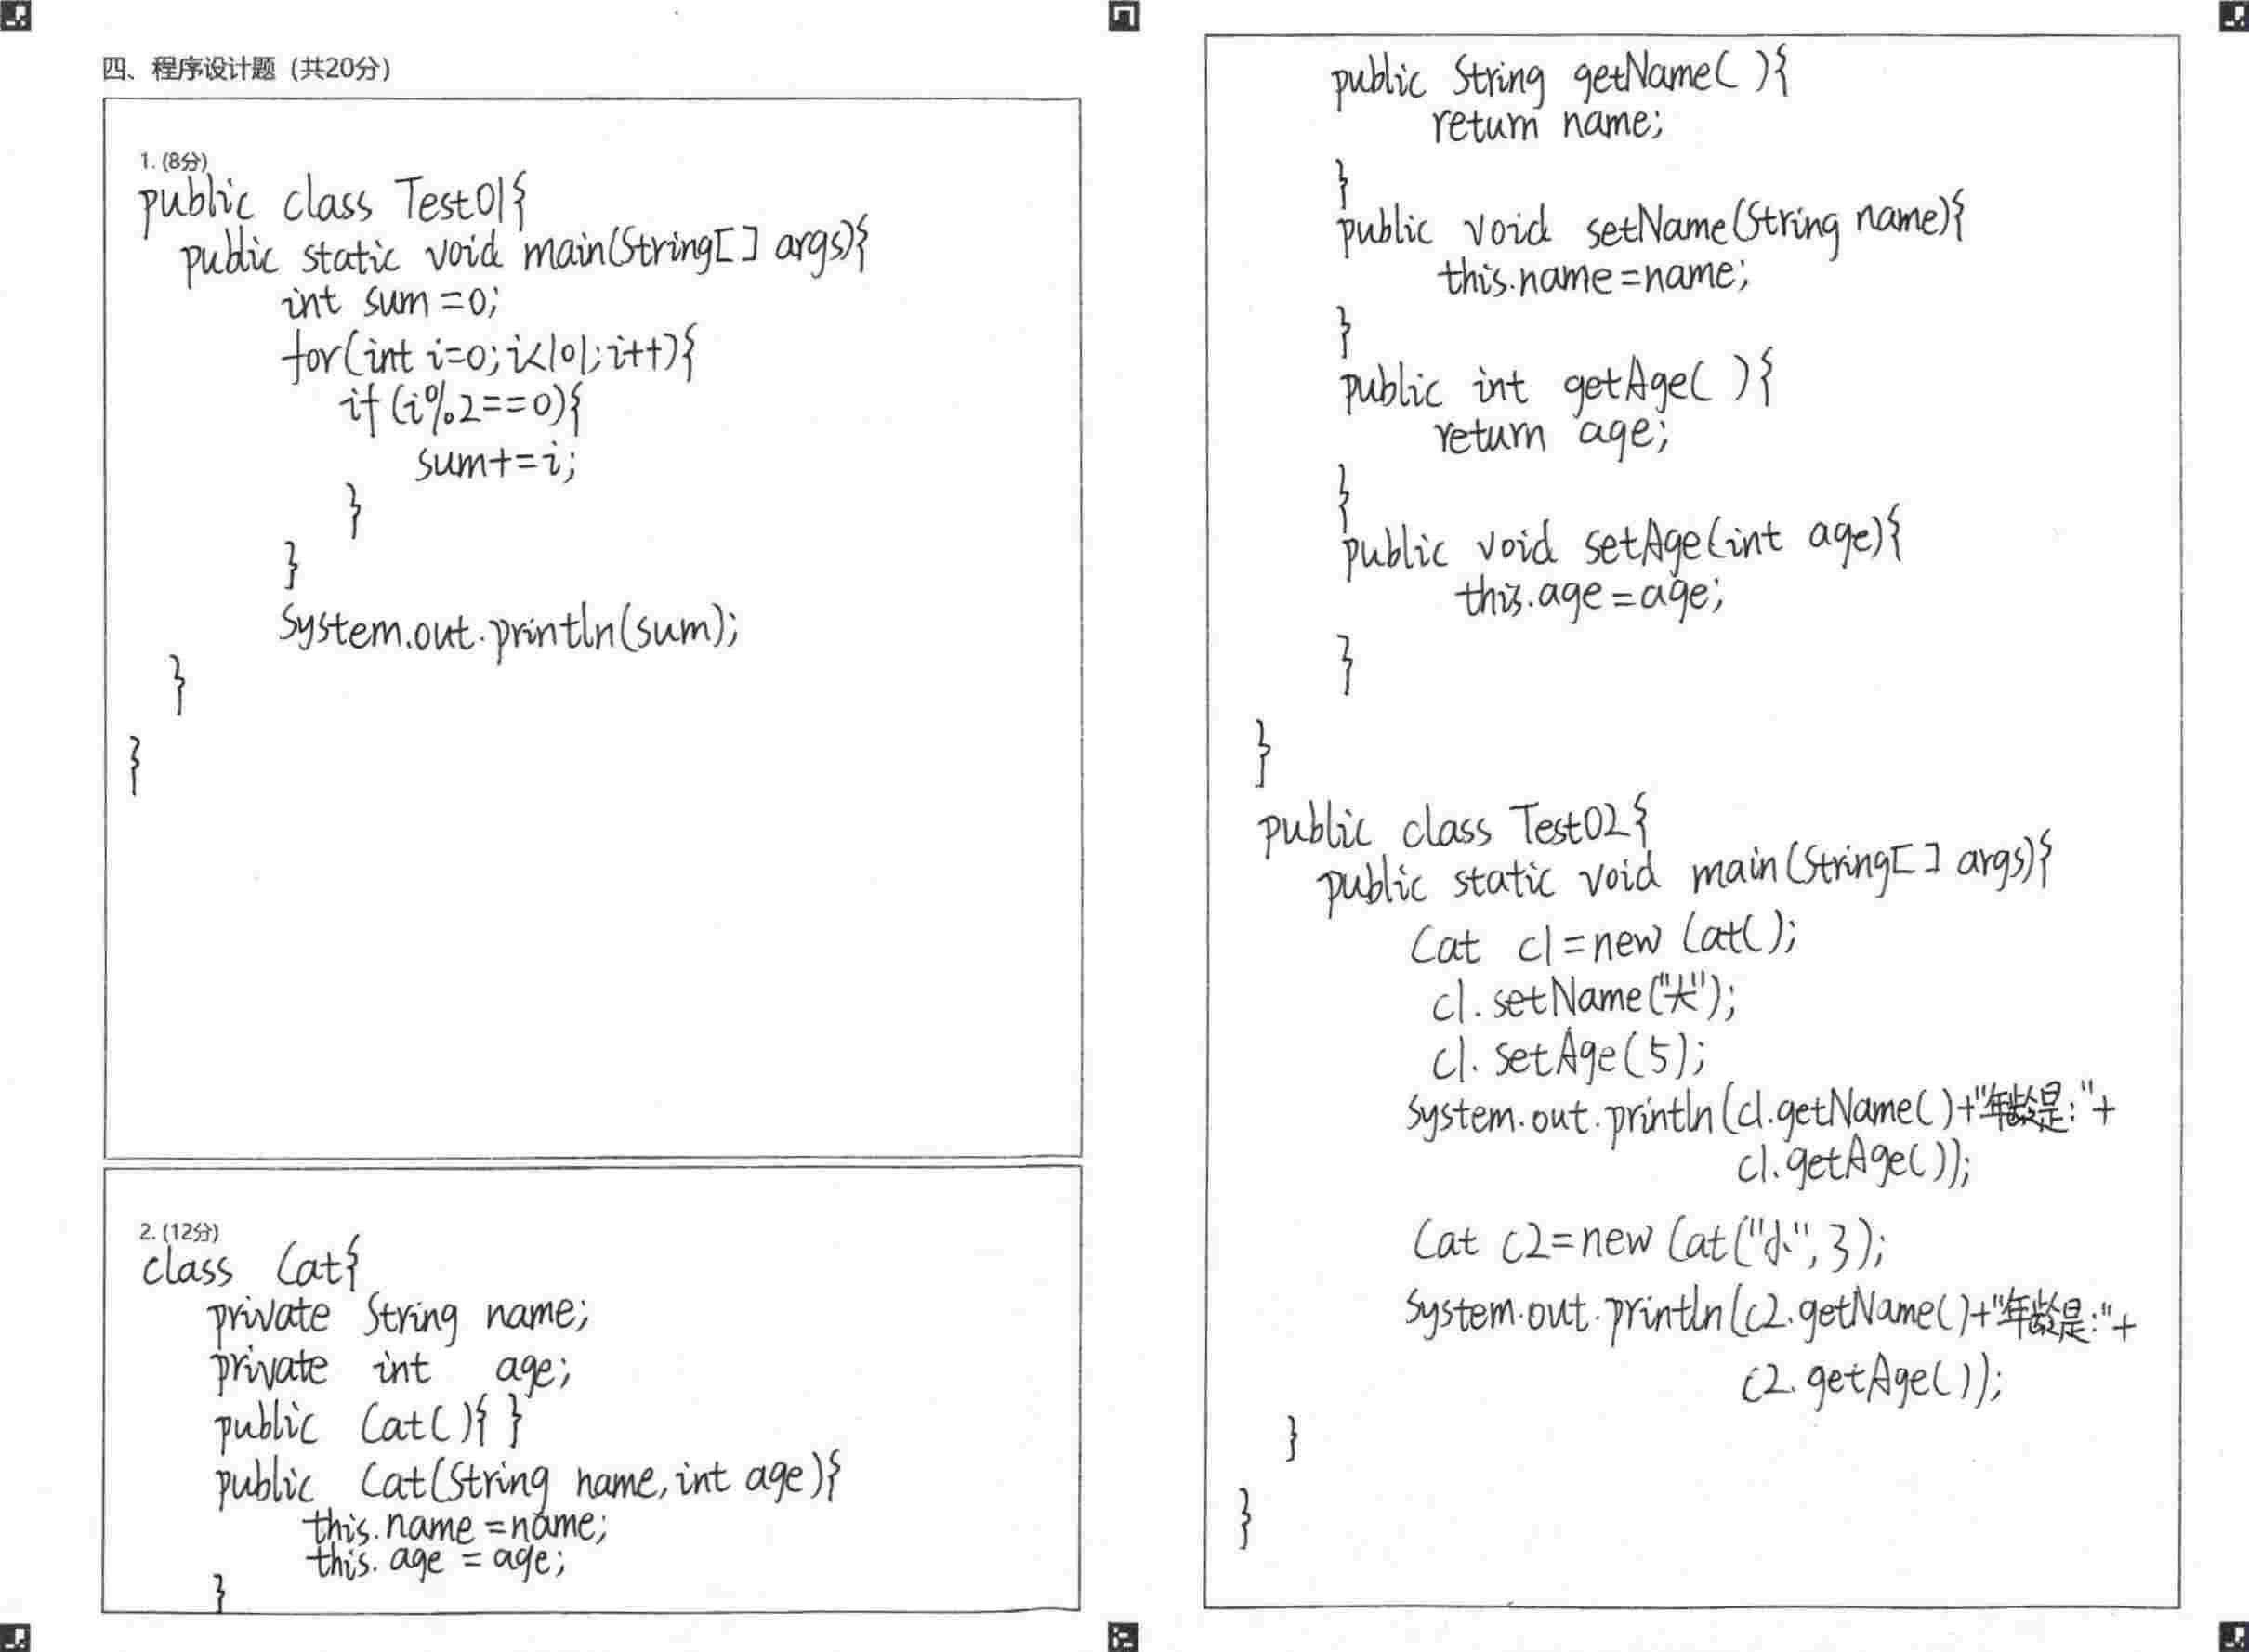 四、程序设计题（共20分）
1. (8分)
public class Test01{
public static void main(String[] args){
int sum=0;
for(int i=0;i<101;i++){
if(i%2==0){
sum+=i;
}
}
System.out.println(sum);
}
}
2. (12分)
class Cat{
private String name;
private int age;
public Cat(){ }
public Cat(String name,int age){
this.name=name;
this.age=age;
}
public String getName( ){
return name;
}
public void setName(String name){
this.name=name;
}
public int getAge( ){
return age;
}
public void setAge(int age){
this.age=age;
}
}
public class Test02{
public static void main(String[] args){
Cat c1=new Cat();
c1.setName("大");
c1.setAge(5);
System.out.println(c1.getName()+"年龄是:"+
c1.getAge());
Cat c2=new Cat("小",3);
System.out.println(c2.getName()+"年龄是:"+
c2.getAge());
}
}